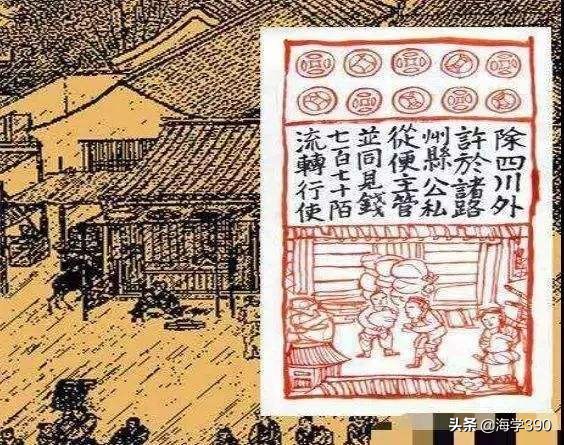 除四川外
許於諸路
州縣公私
從便主管
並同見錢
七百七十陌
流轉行使
头条 @海学390